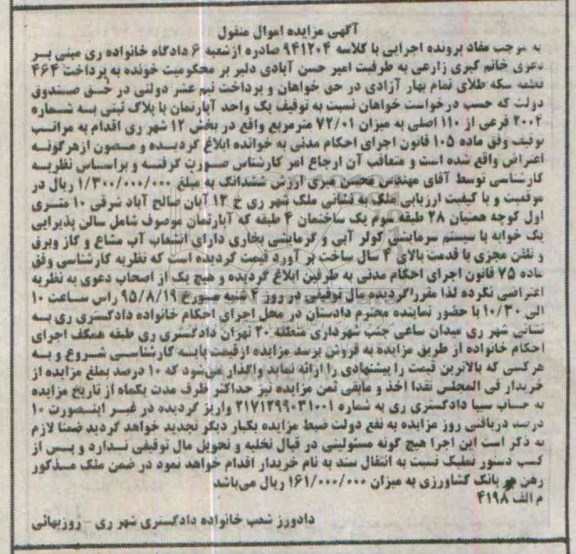 آگهی مزایده اموال منقول
به موجب مفاد پرونده اجرایی با کلاسه ۹۴۱۲۰۴ صادره ازشعبه ۶ دادگاه خانواده ری مبنی بر
دعوی خانم کبری زارعی به طرفیت امیر حسن آبادی دلیر بر محکومیت خونده به پرداخت ۴۶۴
قطعه سکه طلای تمام بهار آزادی در حق خواهان و پرداخت نیم عشر دولتی در حق صندوق
دولت که حسب درخواست خواهان نسبت به توقیف یک واحد آپارتمان با پلاک ثبتی به شماره
۲۰۰۴ فرعی از ۱۱۰ اصلی به میزان ۷۲/۰۱ مترمربع واقع در بخش ۱۲ شهر ری اقدام به مراتب
توقیف وفق ماده ۱۰۵ قانون اجرای احکام مدنی به خوانده ابلاغ گردیده و مصون ازهرگونه
اعتراض واقع شده است و متعاقب آن ارجاع امر کارشناس صورت گرفته و براساس نظریه
کارشناسی توسط آقای مهندس محسن میری ارزش ششدانگ به مبلغ ۱/۳۰۰/۰۰۰/۰۰۰ ریال در
موقعیت و با کیفیت ارزیابی ملک به نشانی ملک شهر ری خ ۱۳ آبان صالح آباد شرقی ۱۰ متری
اول کوچه همتیان ۲۸ طبقه سوم یک ساختمان ۴ طبقه که آپارتمان موصوف شامل سالن پذیرایی
یک خوابه با سیستم سرمایشی کولر آبی و گرمایشی بخاری دارای انشعاب آب مشاع و گاز وبرق
و تلفن مجزی با قدمت بالای ۴ سال ساخت بر آورد قیمت گردیده است که نظریه کارشناسی وفق
ماده ۷۵ قانون اجرای احکام مدنی به طرفین ابلاغ گردیده و هیچ یک از اصحاب دعوی به نظریه
اعتراضی نکرده لذا مقرراگردیده مال توقیفی در روز ۲ شنبه مورخ ۹۵/۸/۱۹ راس ساعت ۱۰
الی ۱۰/۳۰ با حضور نماینده محترم دادستان در محل اجرای احکام خانواده دادگستری ری به
نشانی شهر ری میدان ساعی جنب شهرداری منطقه ۲۰ تهران دادگستری ری طبقه همکف اجرای
احکام خانواده از طریق مزایده به فروش برسد مزایده ازقیمت پایه کارشناسی شروع و به
هرکسی که بالاترین قیمت را پیشنهادی را ارائه نماید واگذار می‌شود که ۱۰ درصد بملغ مزایده از
خریدار فی المجلس نقدا اخذ و مابقی ثمن مزایده نیز حداکثر ظرف مدت یکماه از تاریخ مزایده
به حساب سیبا دادگستری ری به شماره ۲۱۷۱۲۹۹۰۳۱۰۰۱ واریز گردیده در غیر اینصورت ۱۰
درصد دریافتی روز مزایده به نفع دولت ضبط مزایده یکبار دیگر تجدید خواهد گردید ضمنا لازم
به ذکر است این اجرا هیچ گونه مسئولیتی در قبال تخلیه و تحویل مال توقیفی ندارد و پس از
کسب دستور تملیک نسبت به انتقال سند به نام خریدار اقدام خواهد نمود در ضمن ملک مذکور
رهن بانک کشاورزی به میزان ۱۶۱/۰۰۰/۰۰۰ ریال می‌باشد
م الف ۴۱۹۸
دادورز شعب خانواده دادگستری شهر ری - روزبهانی